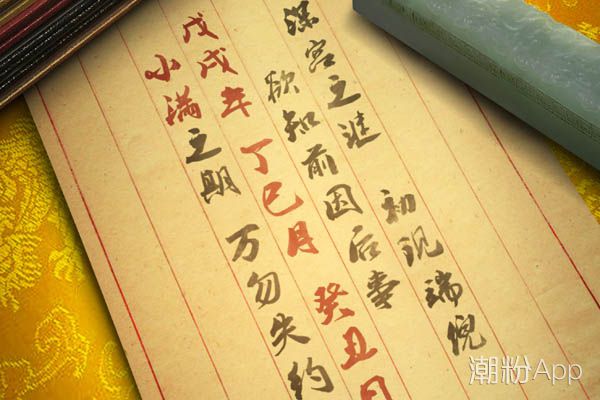 深宫之谜 初现端倪
欲知前因后事
戊戌年 丁巳月 癸丑日
小满之期 万勿失约
潮粉App